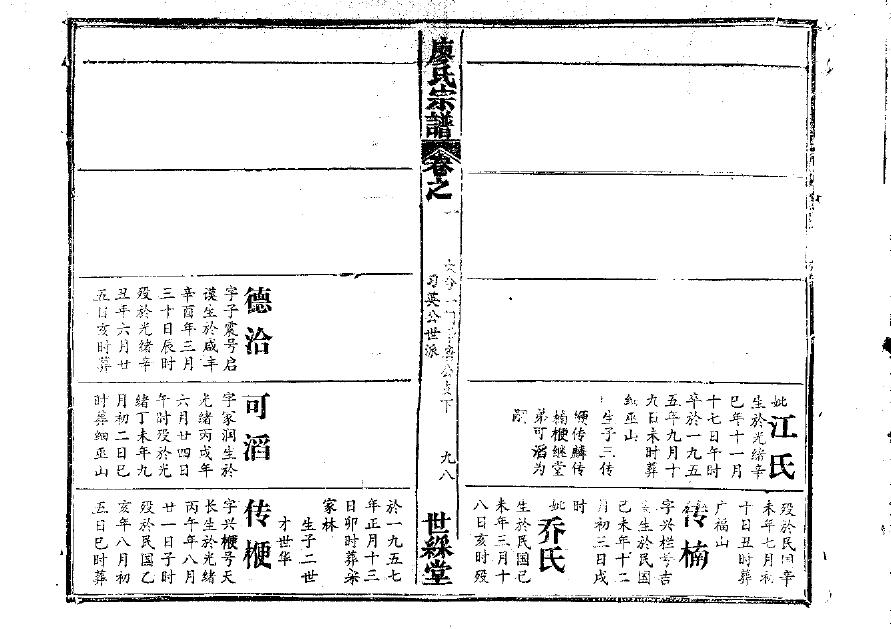 殁於民国辛
未年七月初
十日丑时葬
广福山
传楠
字兴栏号吉
生於民国
己未年十二
月初三日戌
时
妣乔氏
生於民国己
未年三月十
八日亥时殁
妣江氏
生於光绪辛
巳年十一月
十七日午时
卒於一九五
五年九月十
九日未时葬
细巫山
生子三传
颂传麟传
楠梗继堂
弟可滔为
嗣
廖氏宗譜
卷之
一
习英公世派
九八
世綵堂
於一九五七
年正月十三
日卯时葬朵
家林
生子二世
才世华
德洽
字子震号启
谟生於咸丰
辛酉年三月
三十日辰时
殁於光绪辛
丑年六月廿
五日亥时葬
可滔
字家润生於
光绪丙戌年
六月廿四日
午时殁於光
绪丁未年九
月初二日巳
时葬细巫山
传梗
字兴梗号天
长生於光绪
丙午年八月
廿一日子时
殁於民国乙
亥年八月初
五日巳时葬